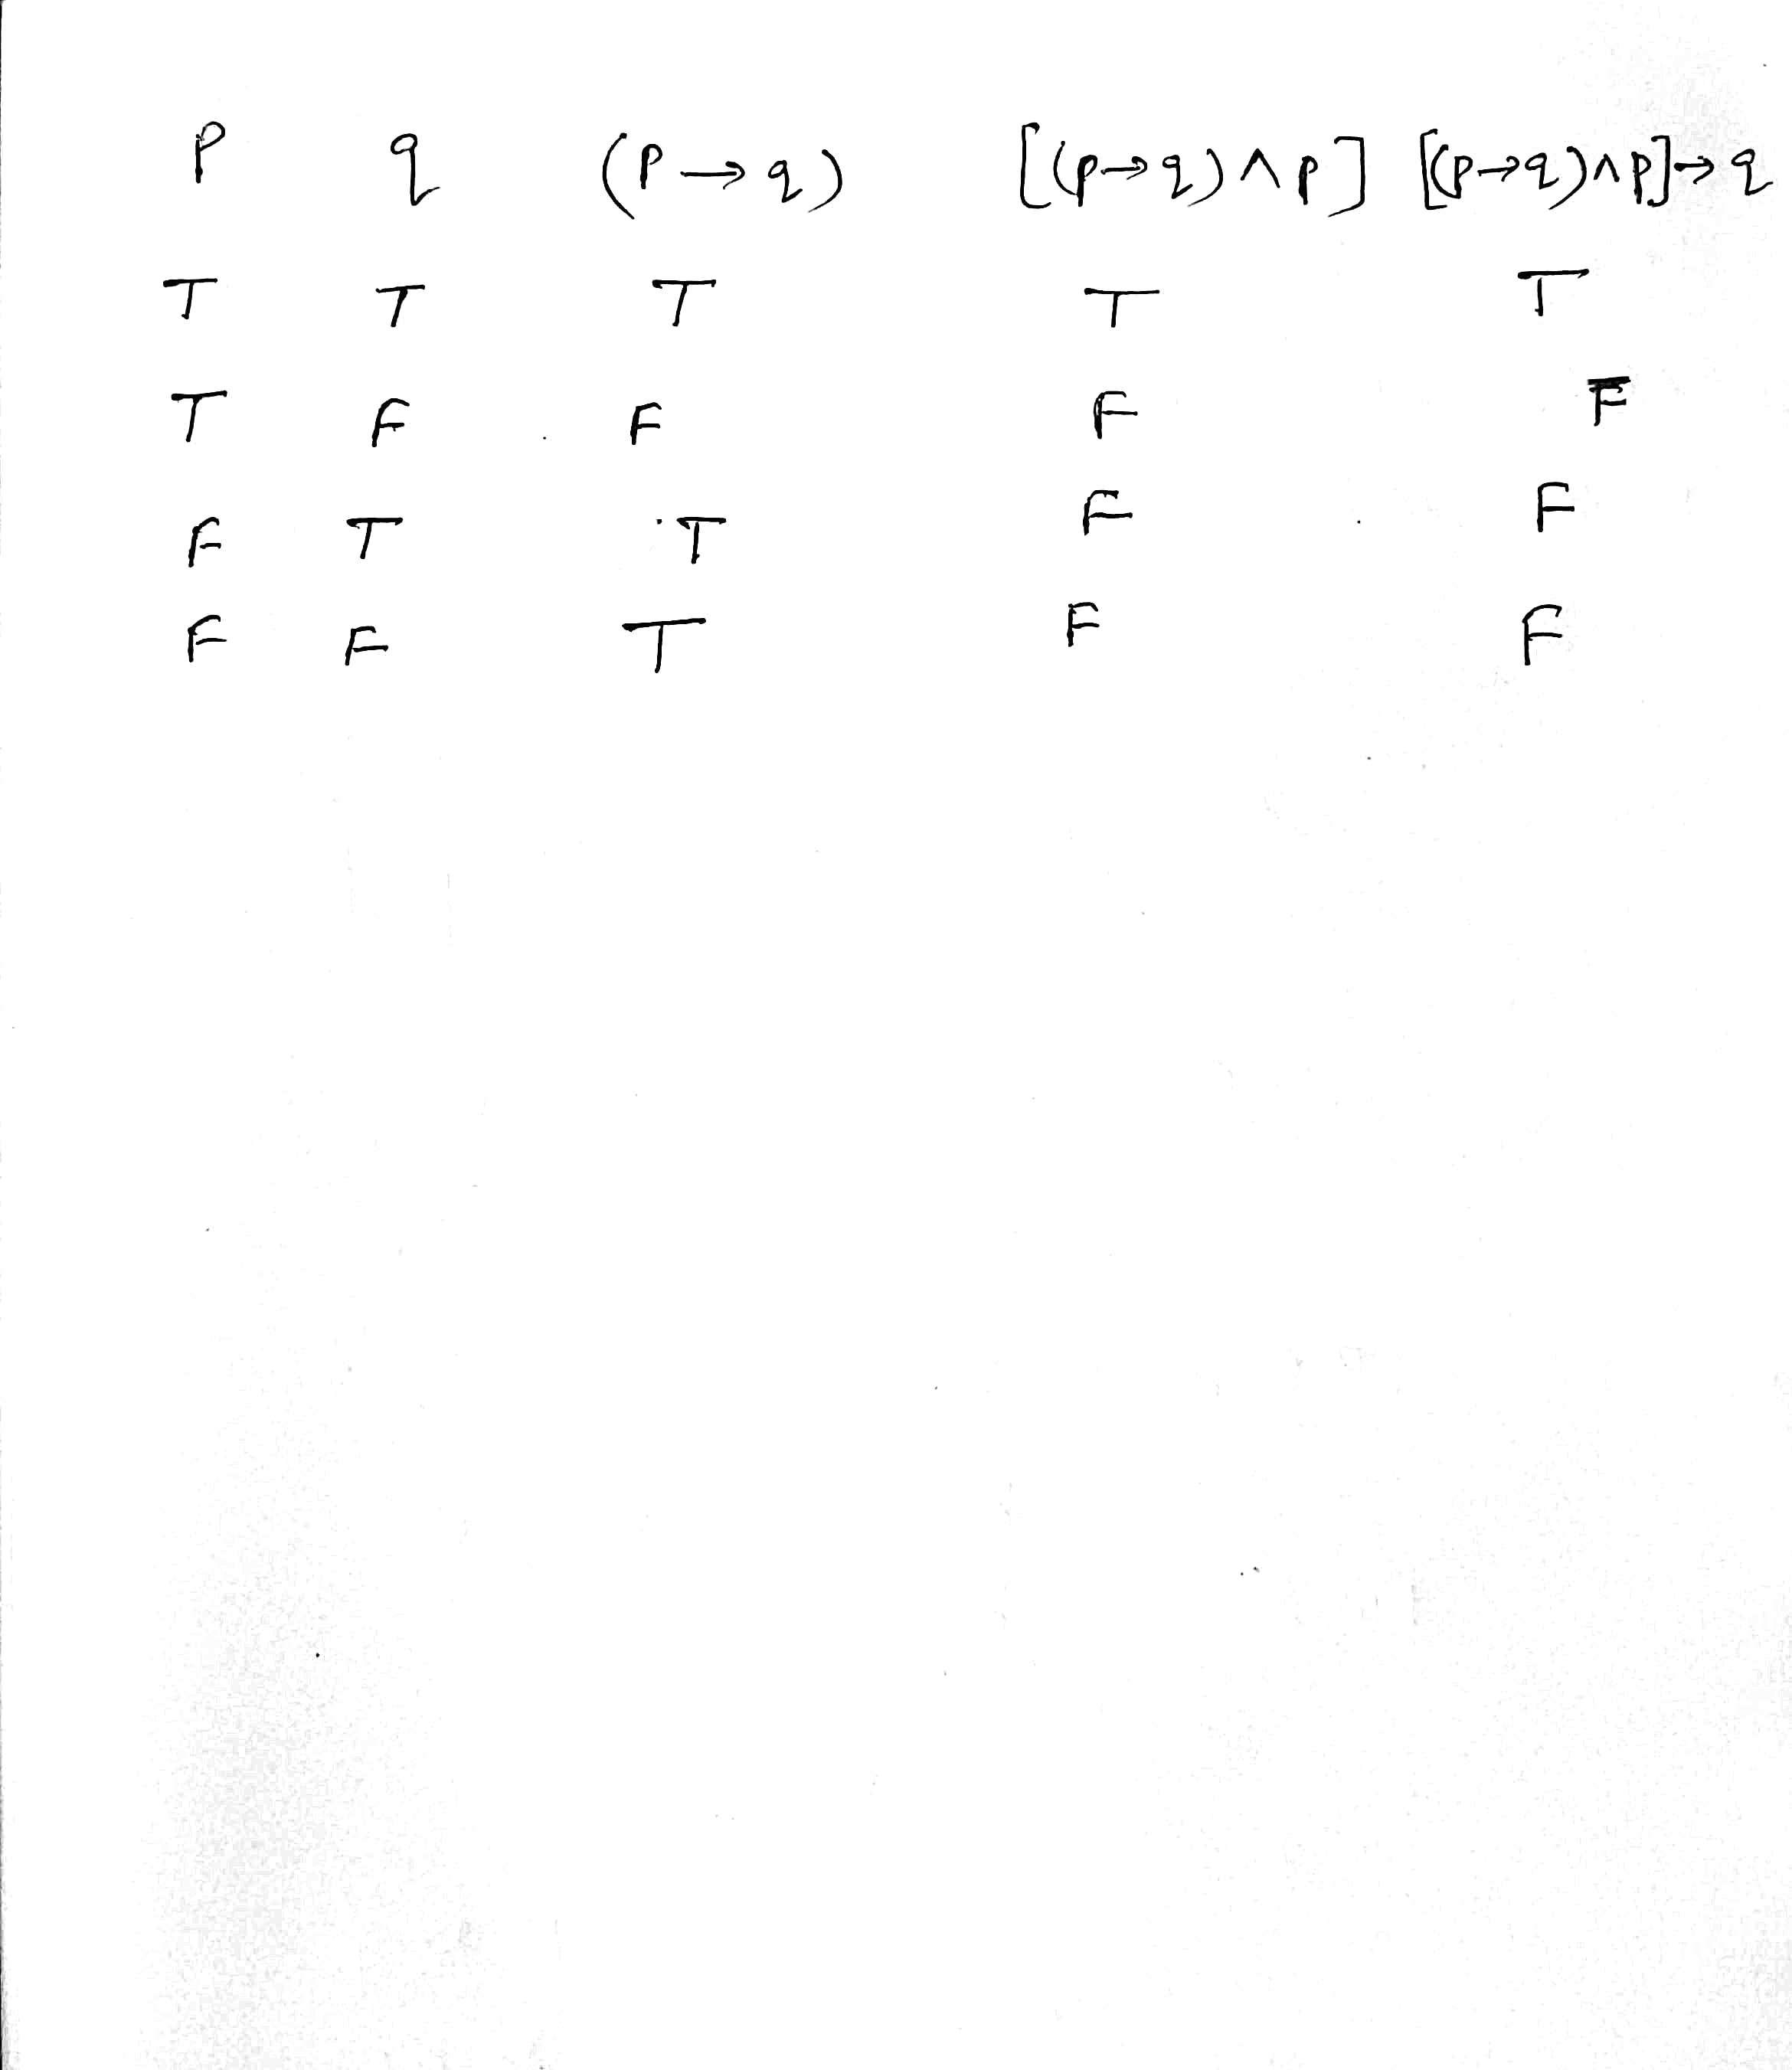 p q (p → q) [(p→q) ∧ p] [(p→q)∧p]→ q
T T T T T
T F F F F
F T T F F
F F T F F